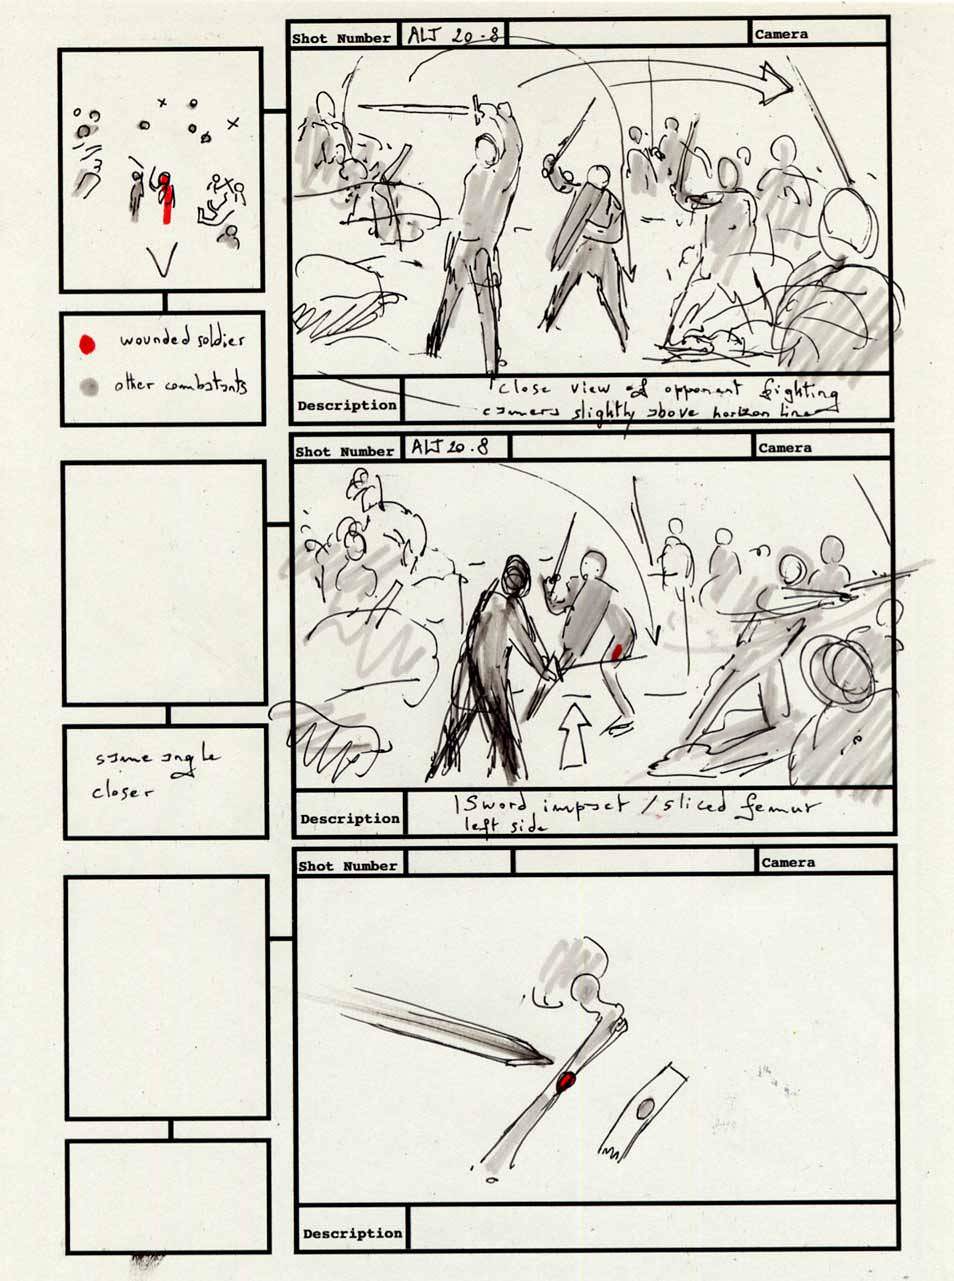 Shot Number ALT 20-8 Camera
wounded soldier
other combatants
Description
close view of opponent fighting
camera slightly above horizon line
Shot Number ALT 20-8 Camera
same angle
closer
Description
Sword impact / sliced femur
left side
Shot Number Camera
Description